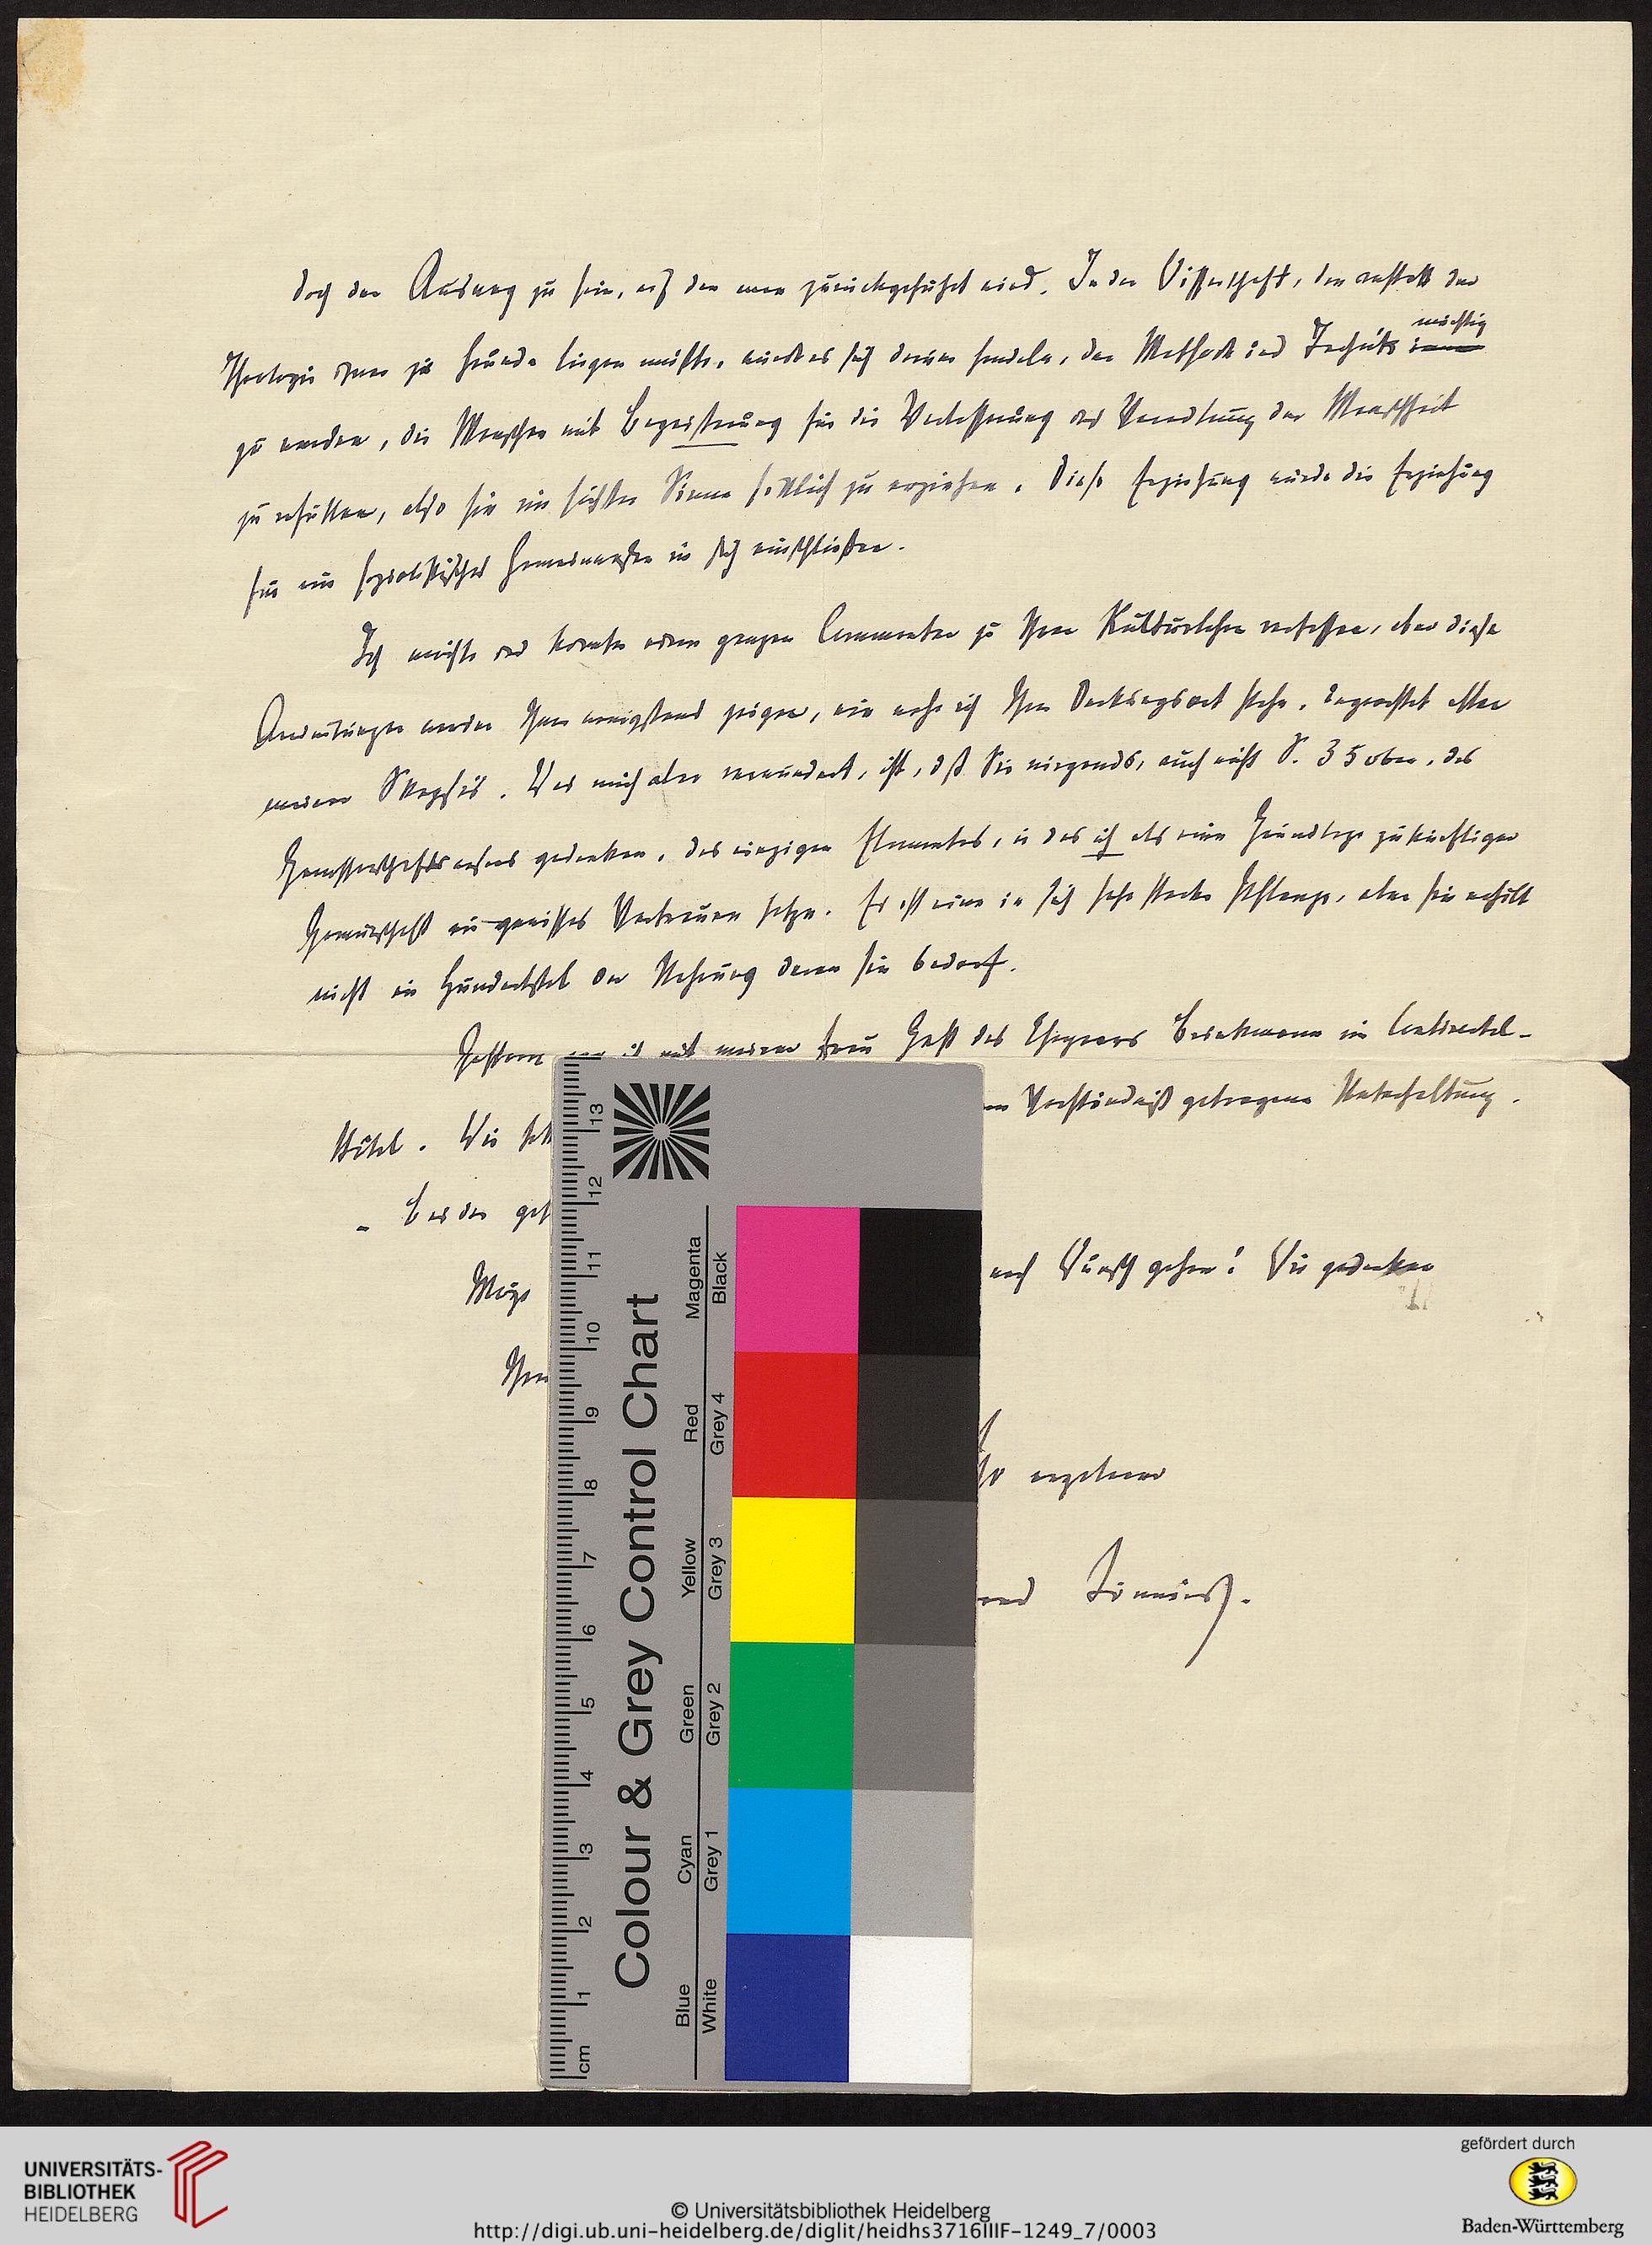 doch der Ausweg zu sein, auf den man zurückgeführt wird. In der Wissenschaft, die anstatt der
mächtig
Theologie dann zu Grunde liegen müßte, würde es sich darum handeln, der Methode und Technik
zu werden, die Menschen mit Begeisterung für die Verbesserung und Veredlung der Menschheit
zu erfüllen, also sie im höchsten Sinne sittlich zu erziehen. Diese Erziehung würde die Erziehung
für ein sozialistisches Gemeinwesen in sich einschließen.
Ich möchte und könnte einen ganzen Commentar zu Ihrer Kulturlehre verfassen, aber diese
Andeutungen werden Ihnen wenigstens zeigen, wie nahe ich Ihrer Denkungsart stehe, ungeachtet aller
meiner Skepsis. Was mich aber verwundert, ist, daß Sie nirgends, auch nicht S. 35 oben, des
Genossenschaftswesens gedenken, des einzigen Elementes, in das ich als eine Grundlage zukünftiger
Gemeinschaft ein gewisses Vertrauen setze. Es ist eine in sich sehr starke Pflanze, aber sie erhält
nicht ein Hundertstel der Nahrung deren sie bedarf.
Gestern war ich mit meiner Frau Gast des Ehepaars Brinkmann im Continental-
Hôtel. Wir
Verständniß getragene Unterhaltung.
Beider
Möge
nach Wunsch gehen! Wir gedenken
Ihr
ergebener
Tönnies.
13
12
11
10
9
8
7
6
5
4
3
2
1
cm
Colour & Grey Control Chart
Magenta
Black
Red
Grey 4
Yellow
Grey 3
Green
Grey 2
Cyan
Grey 1
Blue
White
UNIVERSITÄTS-
BIBLIOTHEK
HEIDELBERG
© Universitätsbibliothek Heidelberg
http://digi.ub.uni-heidelberg.de/diglit/heidhs3716IIIF-1249_7/0003
gefördert durch
Baden-Württemberg